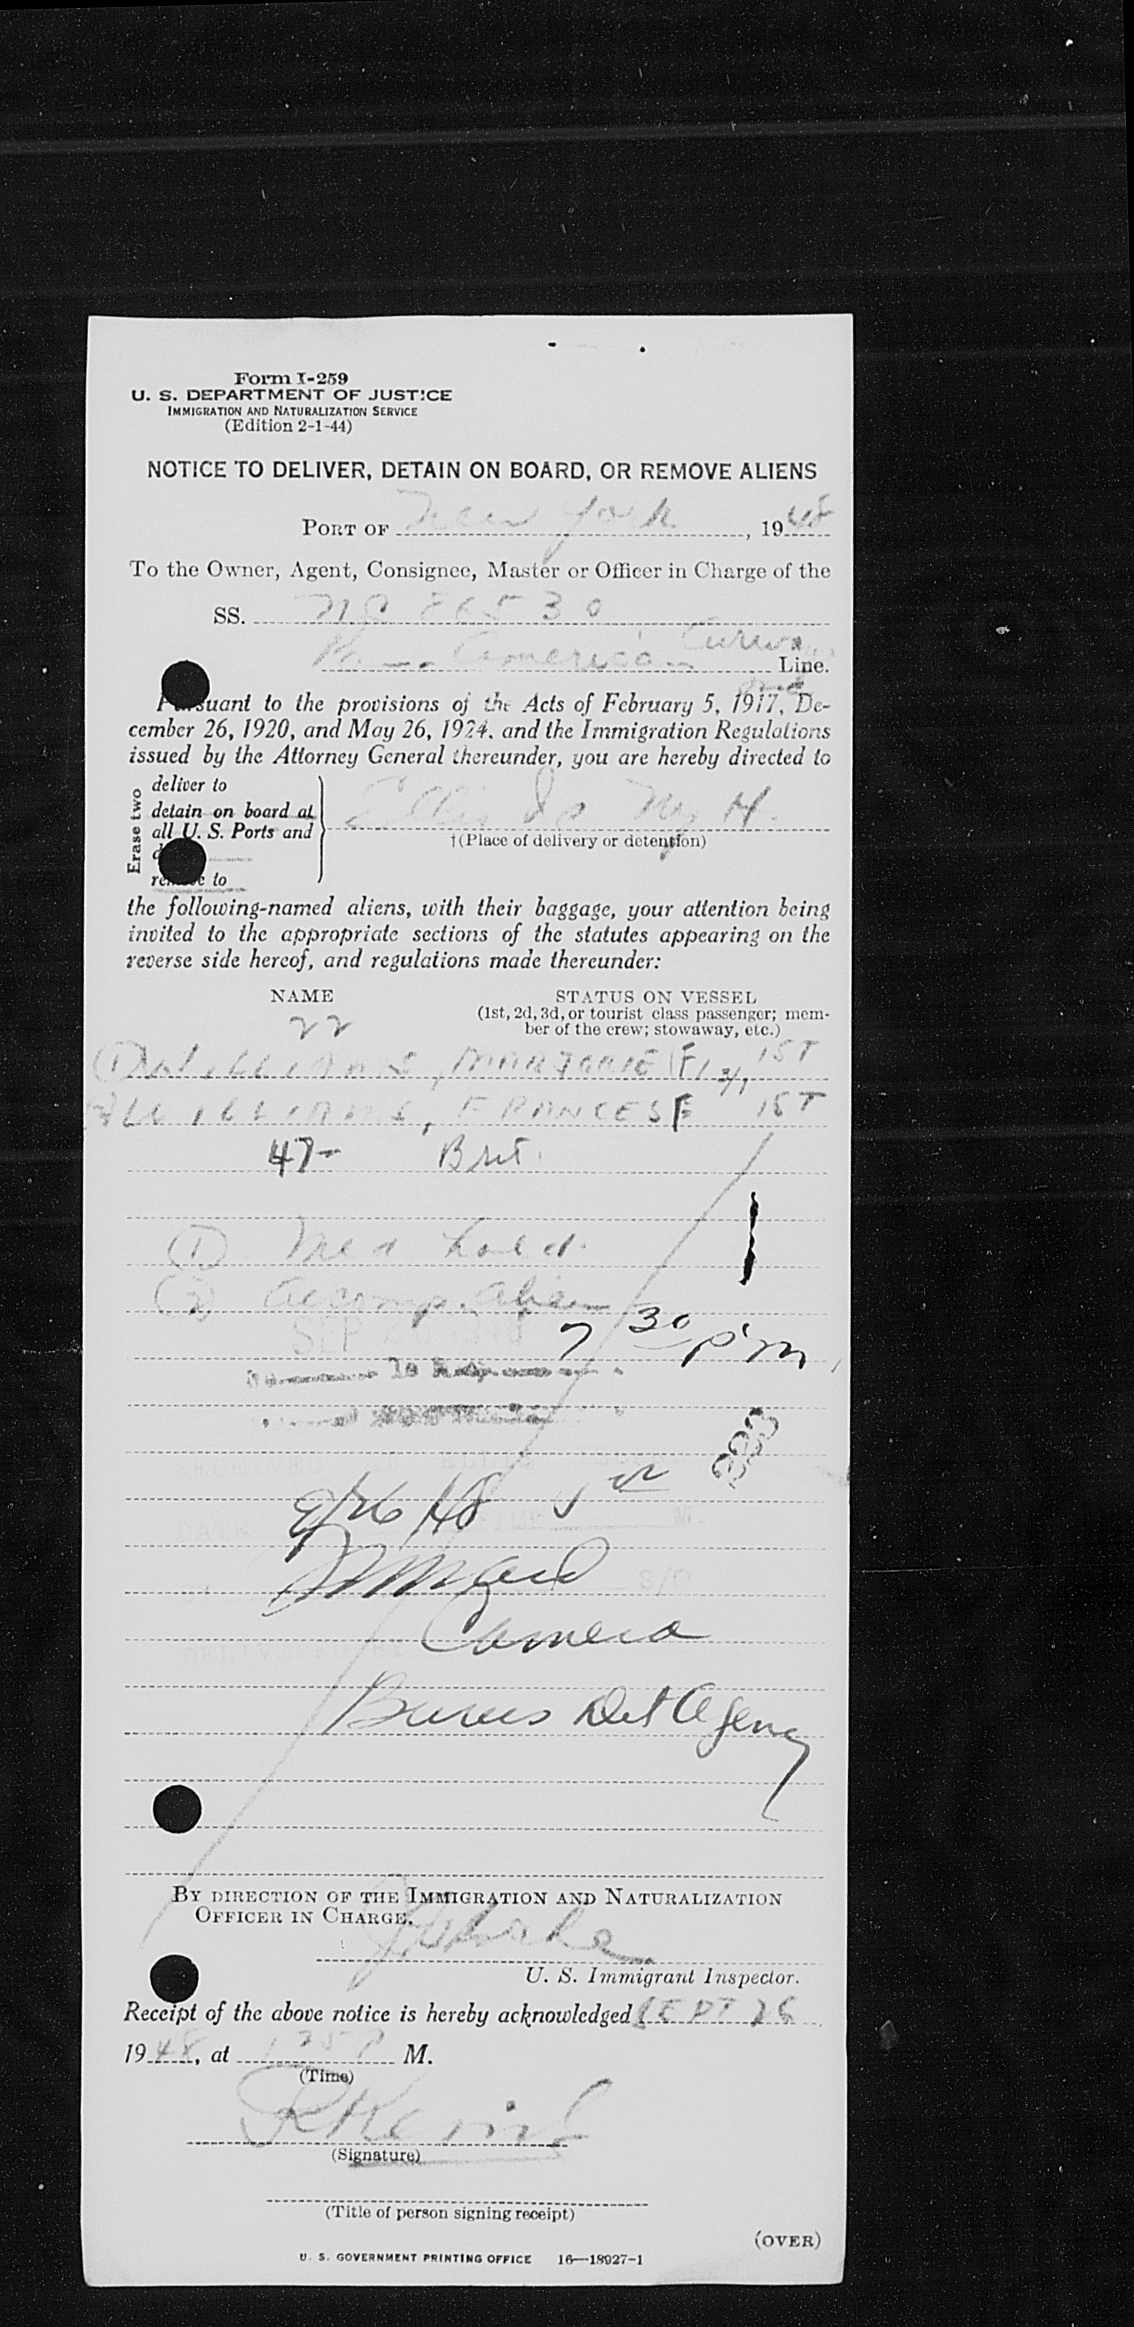 Form I-259
U. S. DEPARTMENT OF JUSTICE
IMMIGRATION AND NATURALIZATION SERVICE
(Edition 2-1-44)
NOTICE TO DELIVER, DETAIN ON BOARD, OR REMOVE ALIENS
PORT OF New York, 1948
To the Owner, Agent, Consignee, Master or Officer in Charge of the
SS. NC 86530
America Line.
Pursuant to the provisions of the Acts of February 5, 1917, De-
cember 26, 1920, and May 26, 1924, and the Immigration Regulations
issued by the Attorney General thereunder, you are hereby directed to
Erase two
deliver to
detain on board at
all U. S. Ports and
remove to
Ellis Is
†(Place of delivery or detention)
the following-named aliens, with their baggage, your attention being
invited to the appropriate sections of the statutes appearing on the
reverse side hereof, and regulations made thereunder:
NAME
STATUS ON VESSEL
(1st, 2d, 3d, or tourist class passenger; mem-
ber of the crew; stowaway, etc.)
22
① WILLIAMS, MARJORIE F 1ST
WILLIAMS, FRANCES F 1ST
47- Brit.
① Med hold.
② accomp. alien
SEP
7 30 pm
9/26/48
Camera
Burns Det Agency
BY DIRECTION OF THE IMMIGRATION AND NATURALIZATION
OFFICER IN CHARGE.
U. S. Immigrant Inspector.
Receipt of the above notice is hereby acknowledged SEPT 26
1948, at M.
(Time)
(Signature)
(Title of person signing receipt)
(OVER)
U. S. GOVERNMENT PRINTING OFFICE 16—18927-1